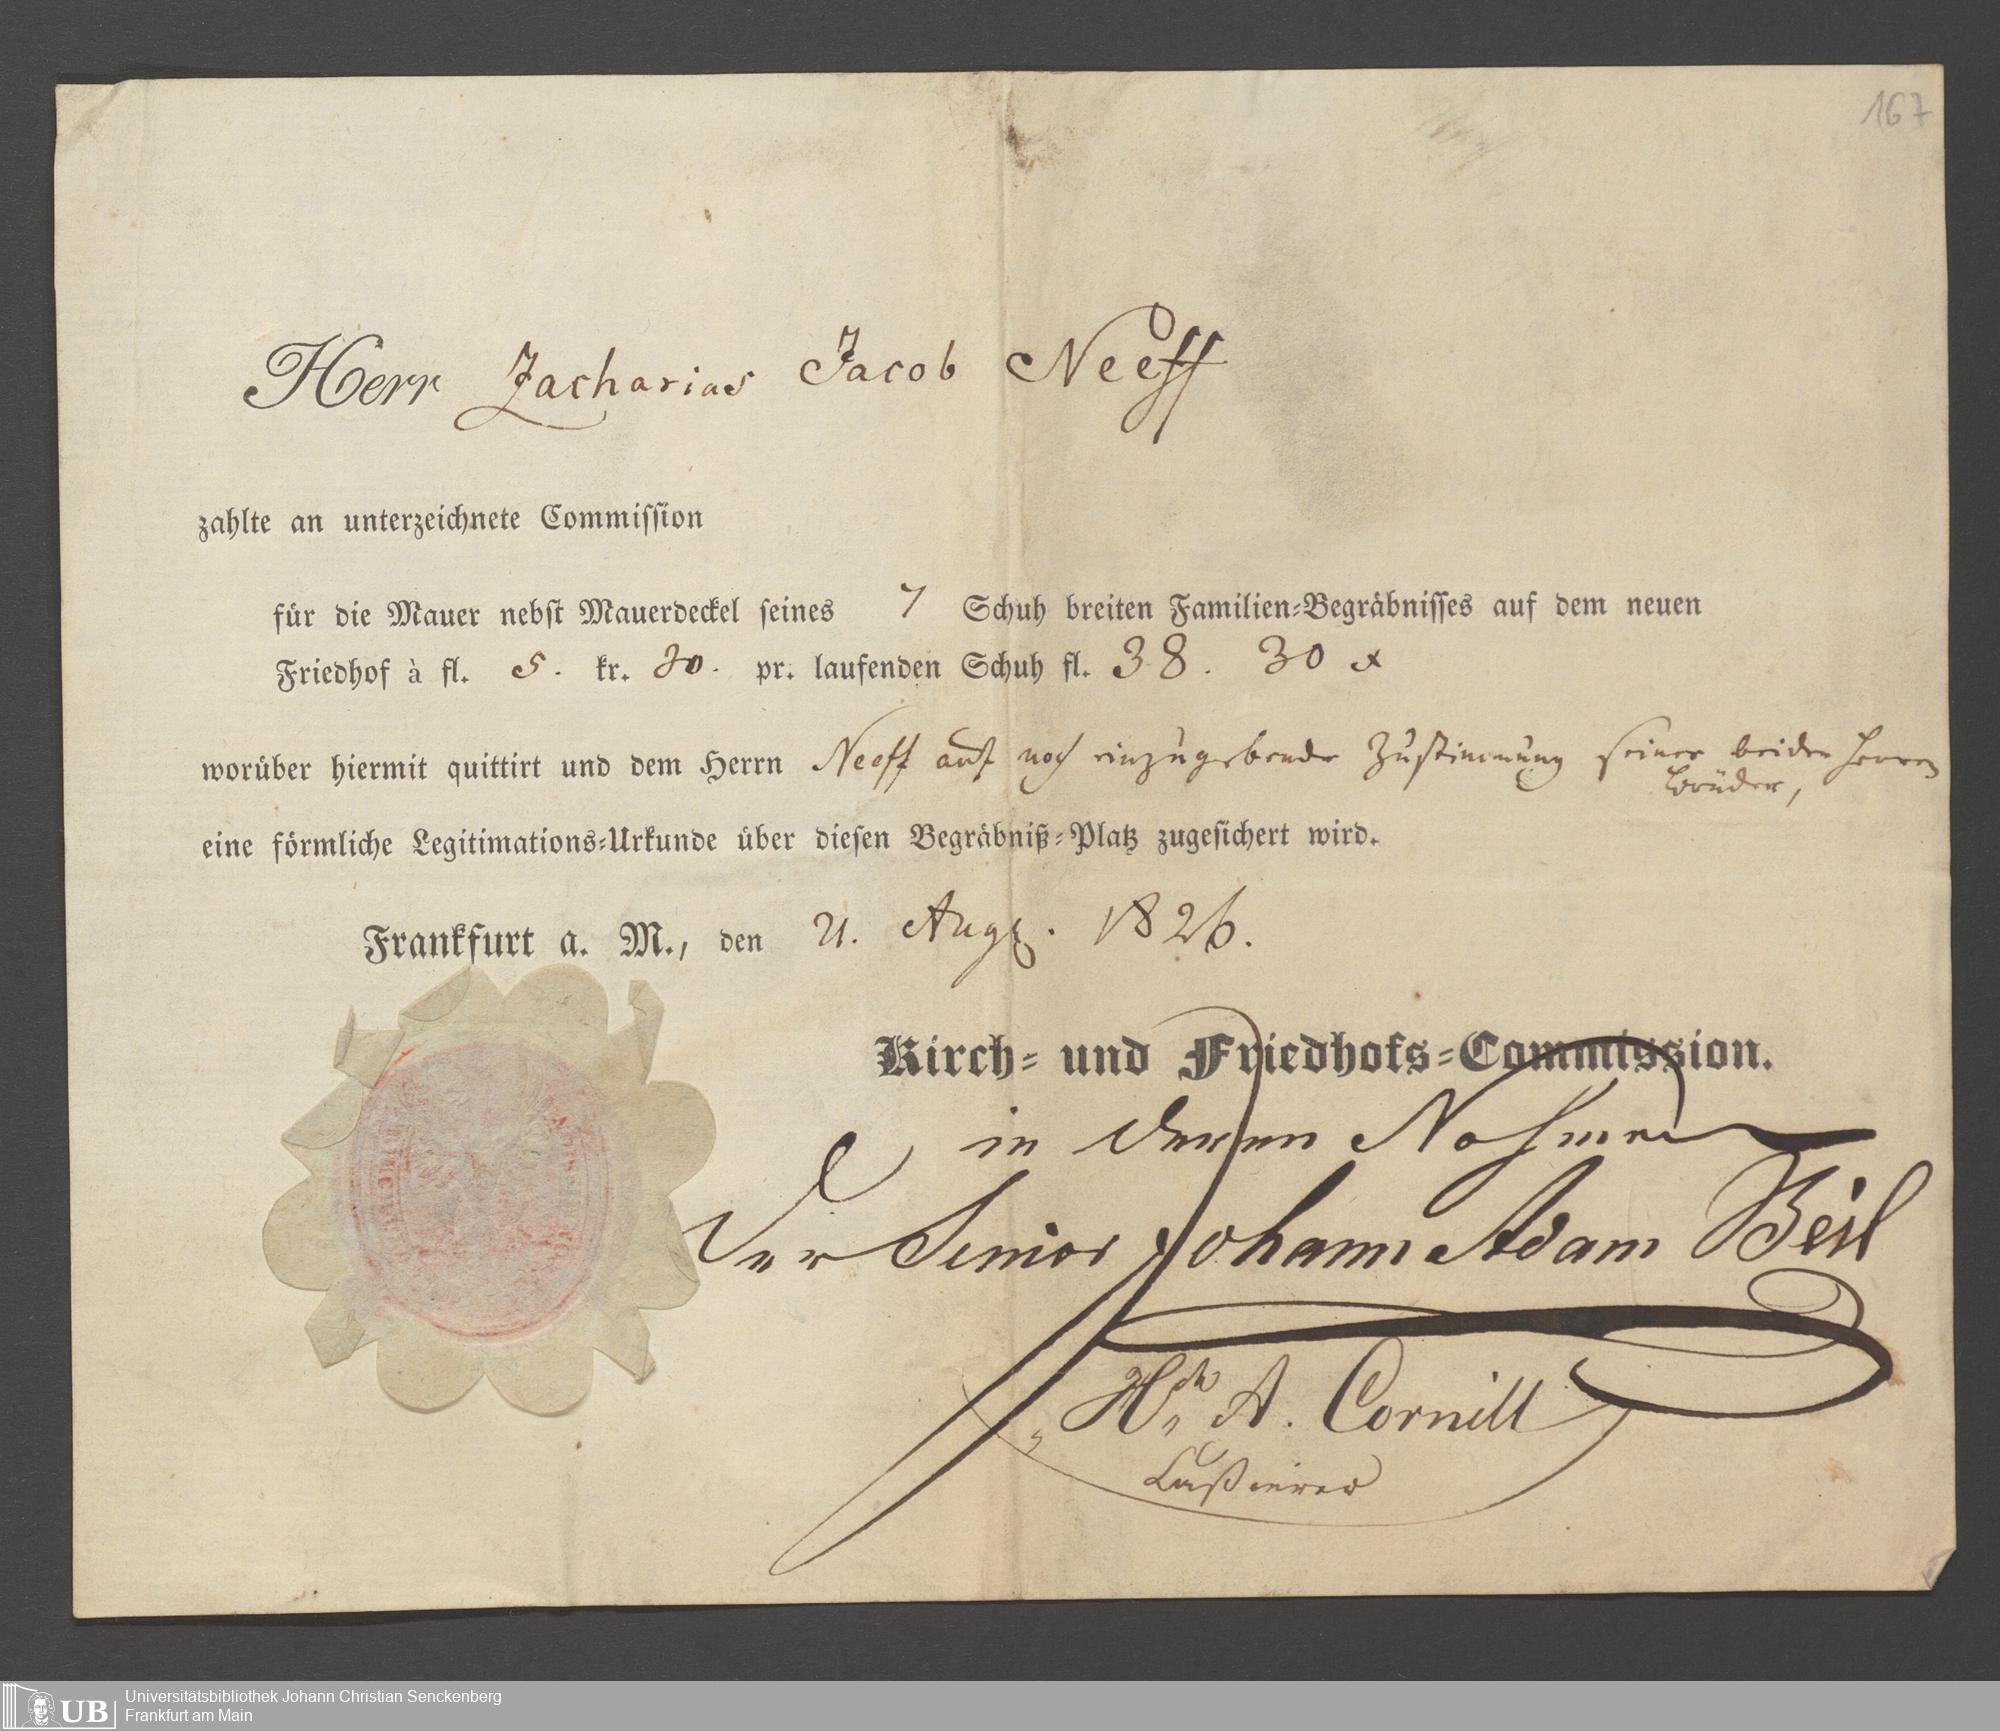 167
Herr Zacharias Jacob Neeff
zahlte an unterzeichnete Commission
für die Mauer nebst Mauerdeckel seines 7 Schuh breiten Familien-Begräbnisses auf dem neuen
Friedhof à fl. 5. kr. 30. pr. laufenden Schuh fl. 38. 30 x
worüber hiermit quittirt und dem Herrn Neeff auf noch einzugebende Zustimmung seiner beiden Herren
Brüder,
eine förmliche Legitimations-Urkunde über diesen Begräbniß-Platz zugesichert wird.
Frankfurt a. M., den 21. Aug. 1826.
Kirch- und Friedhofs-Commission.
in deren Nahmen
Der Senior Johann Adam Beil
Hch A. Cornill
Cassierer
UB
Universitätsbibliothek Johann Christian Senckenberg
Frankfurt am Main